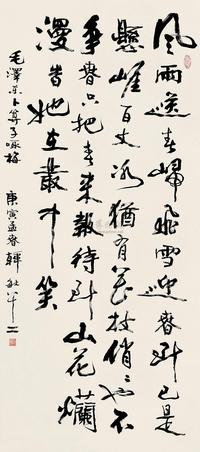 風雨送春歸飛雪迎春到已是
懸崖百丈冰猶有花枝俏々也不
爭春只把春來報待到山花爛
漫時她在叢中笑
毛澤東卜算子咏梅 庚寅孟春韓敏八十二